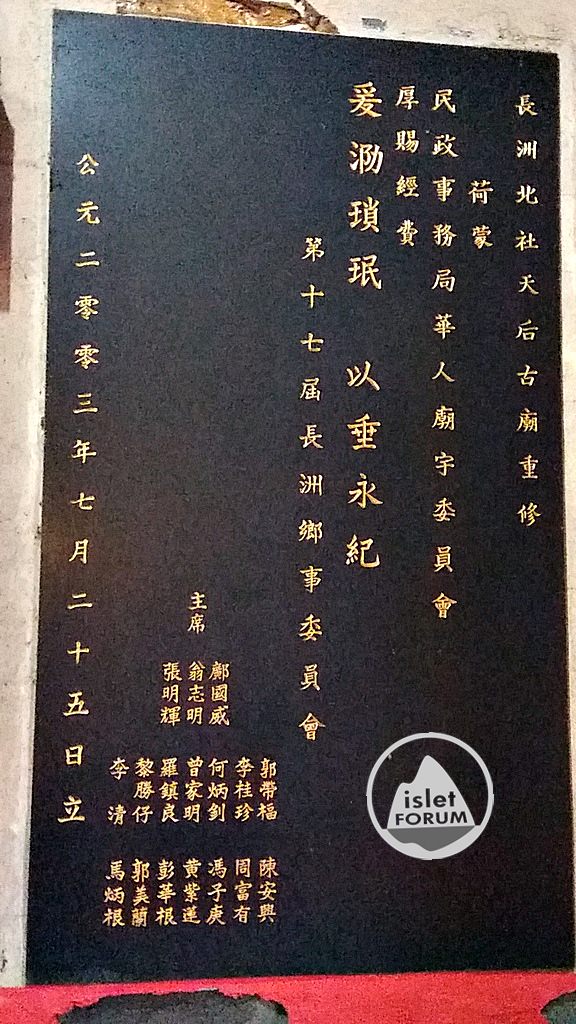 長洲北社天后古廟重修
荷蒙
民政事務局華人廟宇委員會
厚賜經費
爰泐瑣珉 以垂永紀
第十七屆長洲鄉事委員會
主席
鄺國威
翁志明
張明輝
郭帶福
李桂珍
何炳釗
曾家明
羅鎮良
黎勝仔
李清
陳安興
周富有
馮子庚
黃紫蓮
彭華根
郭美蘭
馬炳根
公元二零零三年七月二十五日立
islet
FORUM